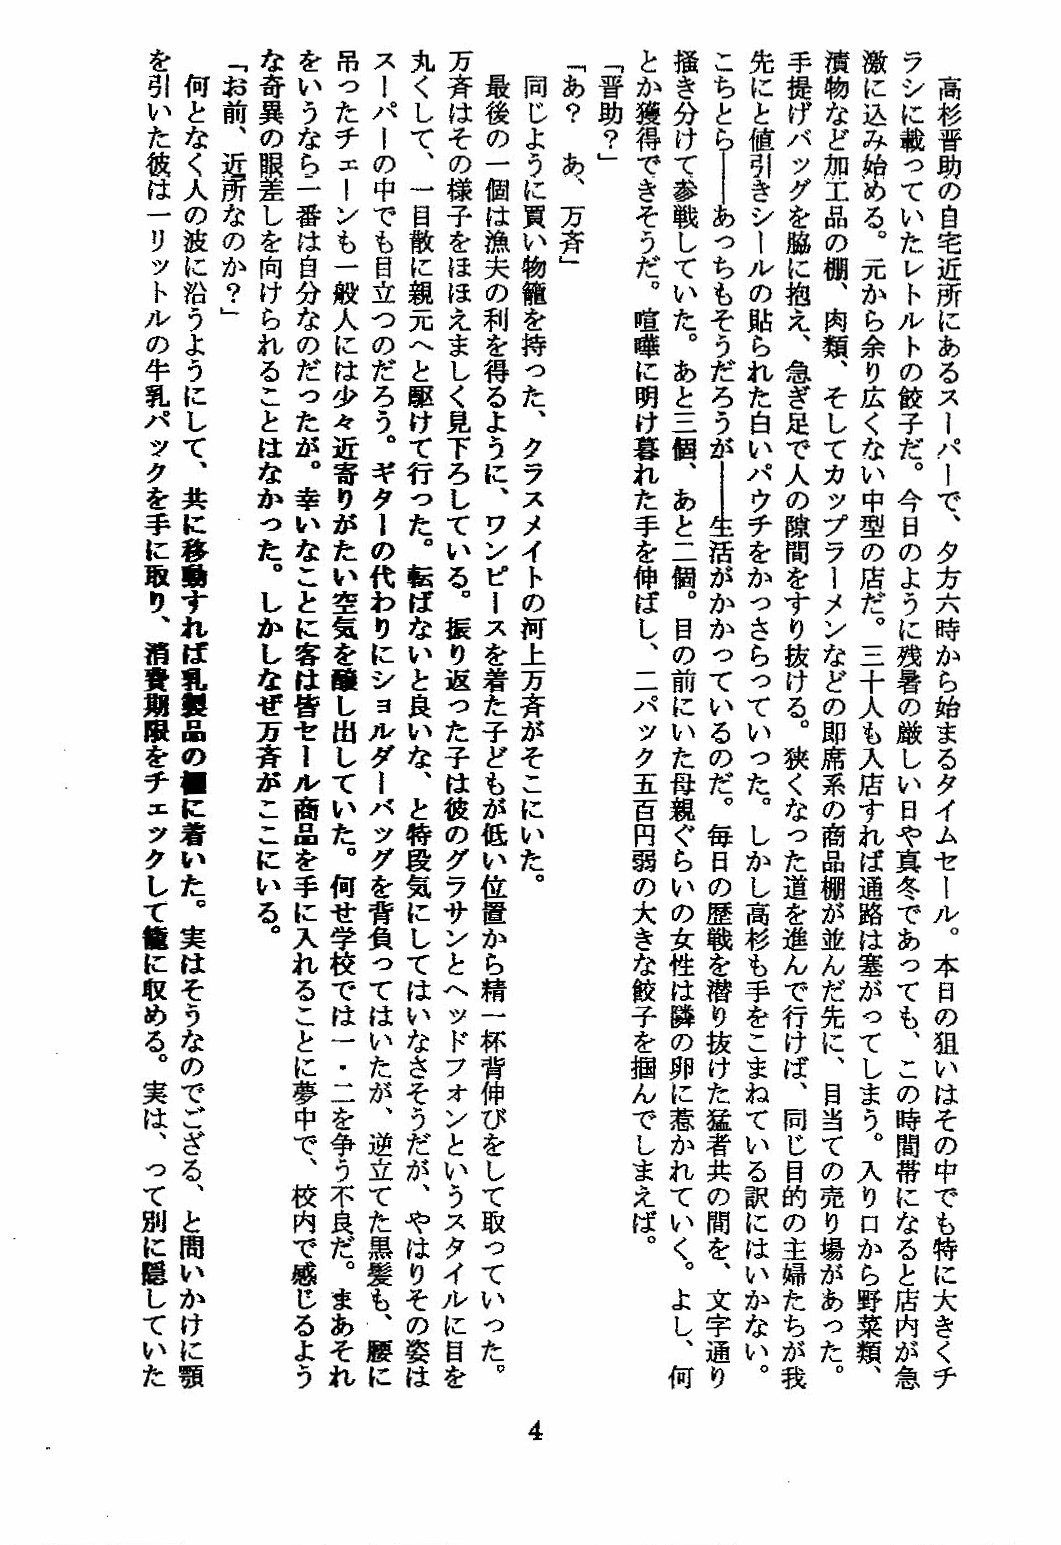 高杉晋助の自宅近所にあるスーパーで、夕方六時から始まるタイムセール。本日の狙いはその中でも特に大きくチ
ラシに載っていたレトルトの餃子だ。今日のように残暑の厳しい日や真冬であっても、この時間帯になると店内が急
激に込み始める。元から余り広くない中型の店だ。三十人も入店すれば通路は塞がってしまう。入り口から野菜類、
漬物など加工品の棚、肉類、そしてカップラーメンなどの即席系の商品棚が並んだ先に、目当ての売り場があった。
手提げバッグを脇に抱え、急ぎ足で人の隙間をすり抜ける。狭くなった道を進んで行けば、同じ目的の主婦たちが我
先にと値引きシールの貼られた白いパウチをかっさらっていった。しかし高杉も手をこまねている訳にはいかない。
こちとら――あっちもそうだろうが――生活がかかっているのだ。毎日の歴戦を潜り抜けた猛者共の間を、文字通り
掻き分けて参戦していた。あと三個、あと二個。目の前にいた母親ぐらいの女性は隣の卵に惹かれていく。よし、何
とか獲得できそうだ。喧嘩に明け暮れた手を伸ばし、二パック五百円弱の大きな餃子を掴んでしまえば。
「晋助？」
「あ？　あ、万斉」
同じように買い物籠を持った、クラスメイトの河上万斉がそこにいた。
最後の一個は漁夫の利を得るように、ワンピースを着た子どもが低い位置から精一杯背伸びをして取っていった。
万斉はその様子をほほえましく見下ろしている。振り返った子は彼のグラサンとヘッドフォンというスタイルに目を
丸くして、一目散に親元へと駆けて行った。転ばないと良いな、と特段気にしてはいなさそうだが、やはりその姿は
スーパーの中でも目立つのだろう。ギターの代わりにショルダーバッグを背負ってはいたが、逆立てた黒髪も、腰に
吊ったチェーンも一般人には少々近寄りがたい空気を醸し出していた。何せ学校では一・二を争う不良だ。まあそれ
をいうなら一番は自分なのだったが。幸いなことに客は皆セール商品を手に入れることに夢中で、校内で感じるよう
な奇異の眼差しを向けられることはなかった。しかしなぜ万斉がここにいる。
「お前、近所なのか？」
何となく人の波に沿うようにして、共に移動すれば乳製品の棚に着いた。実はそうなのでござる、と問いかけに顎
を引いた彼は一リットルの牛乳パックを手に取り、消費期限をチェックして籠に収める。実は、って別に隠していた
4